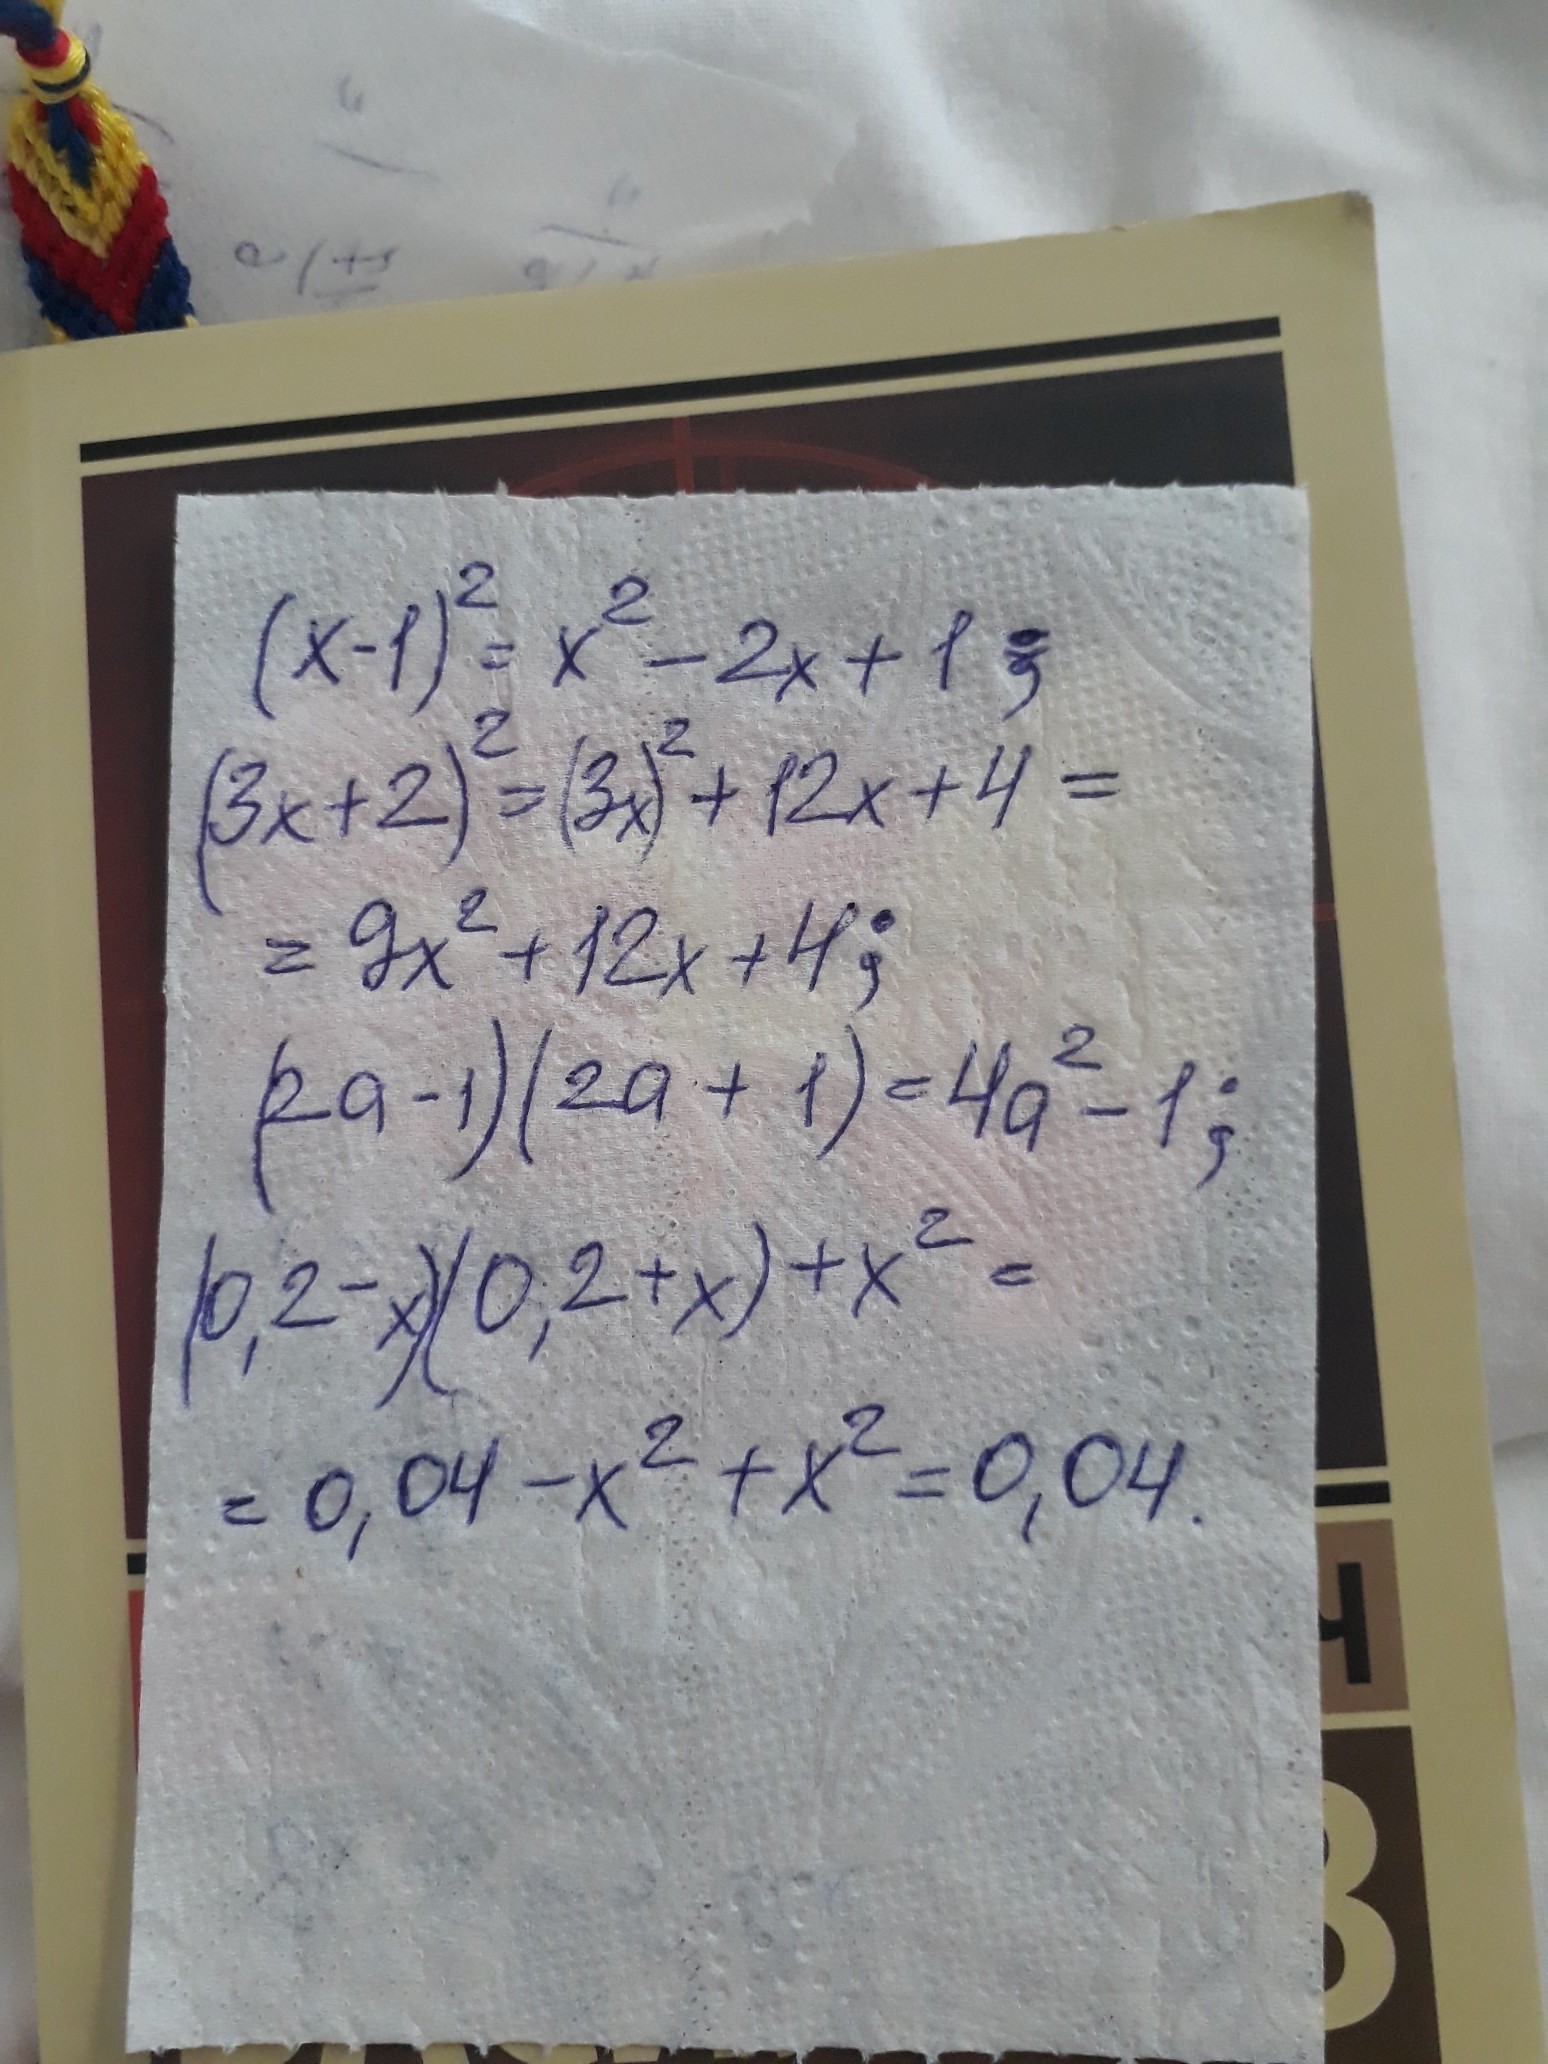 (x-1)² = x² - 2x + 1 ;
(3x+2)² = (3x)² + 12x + 4 =
= 9x² + 12x + 4;
(2a-1)(2a + 1) = 4a² - 1;
(0,2-x)(0,2+x) + x² =
= 0,04 - x² + x² = 0,04.